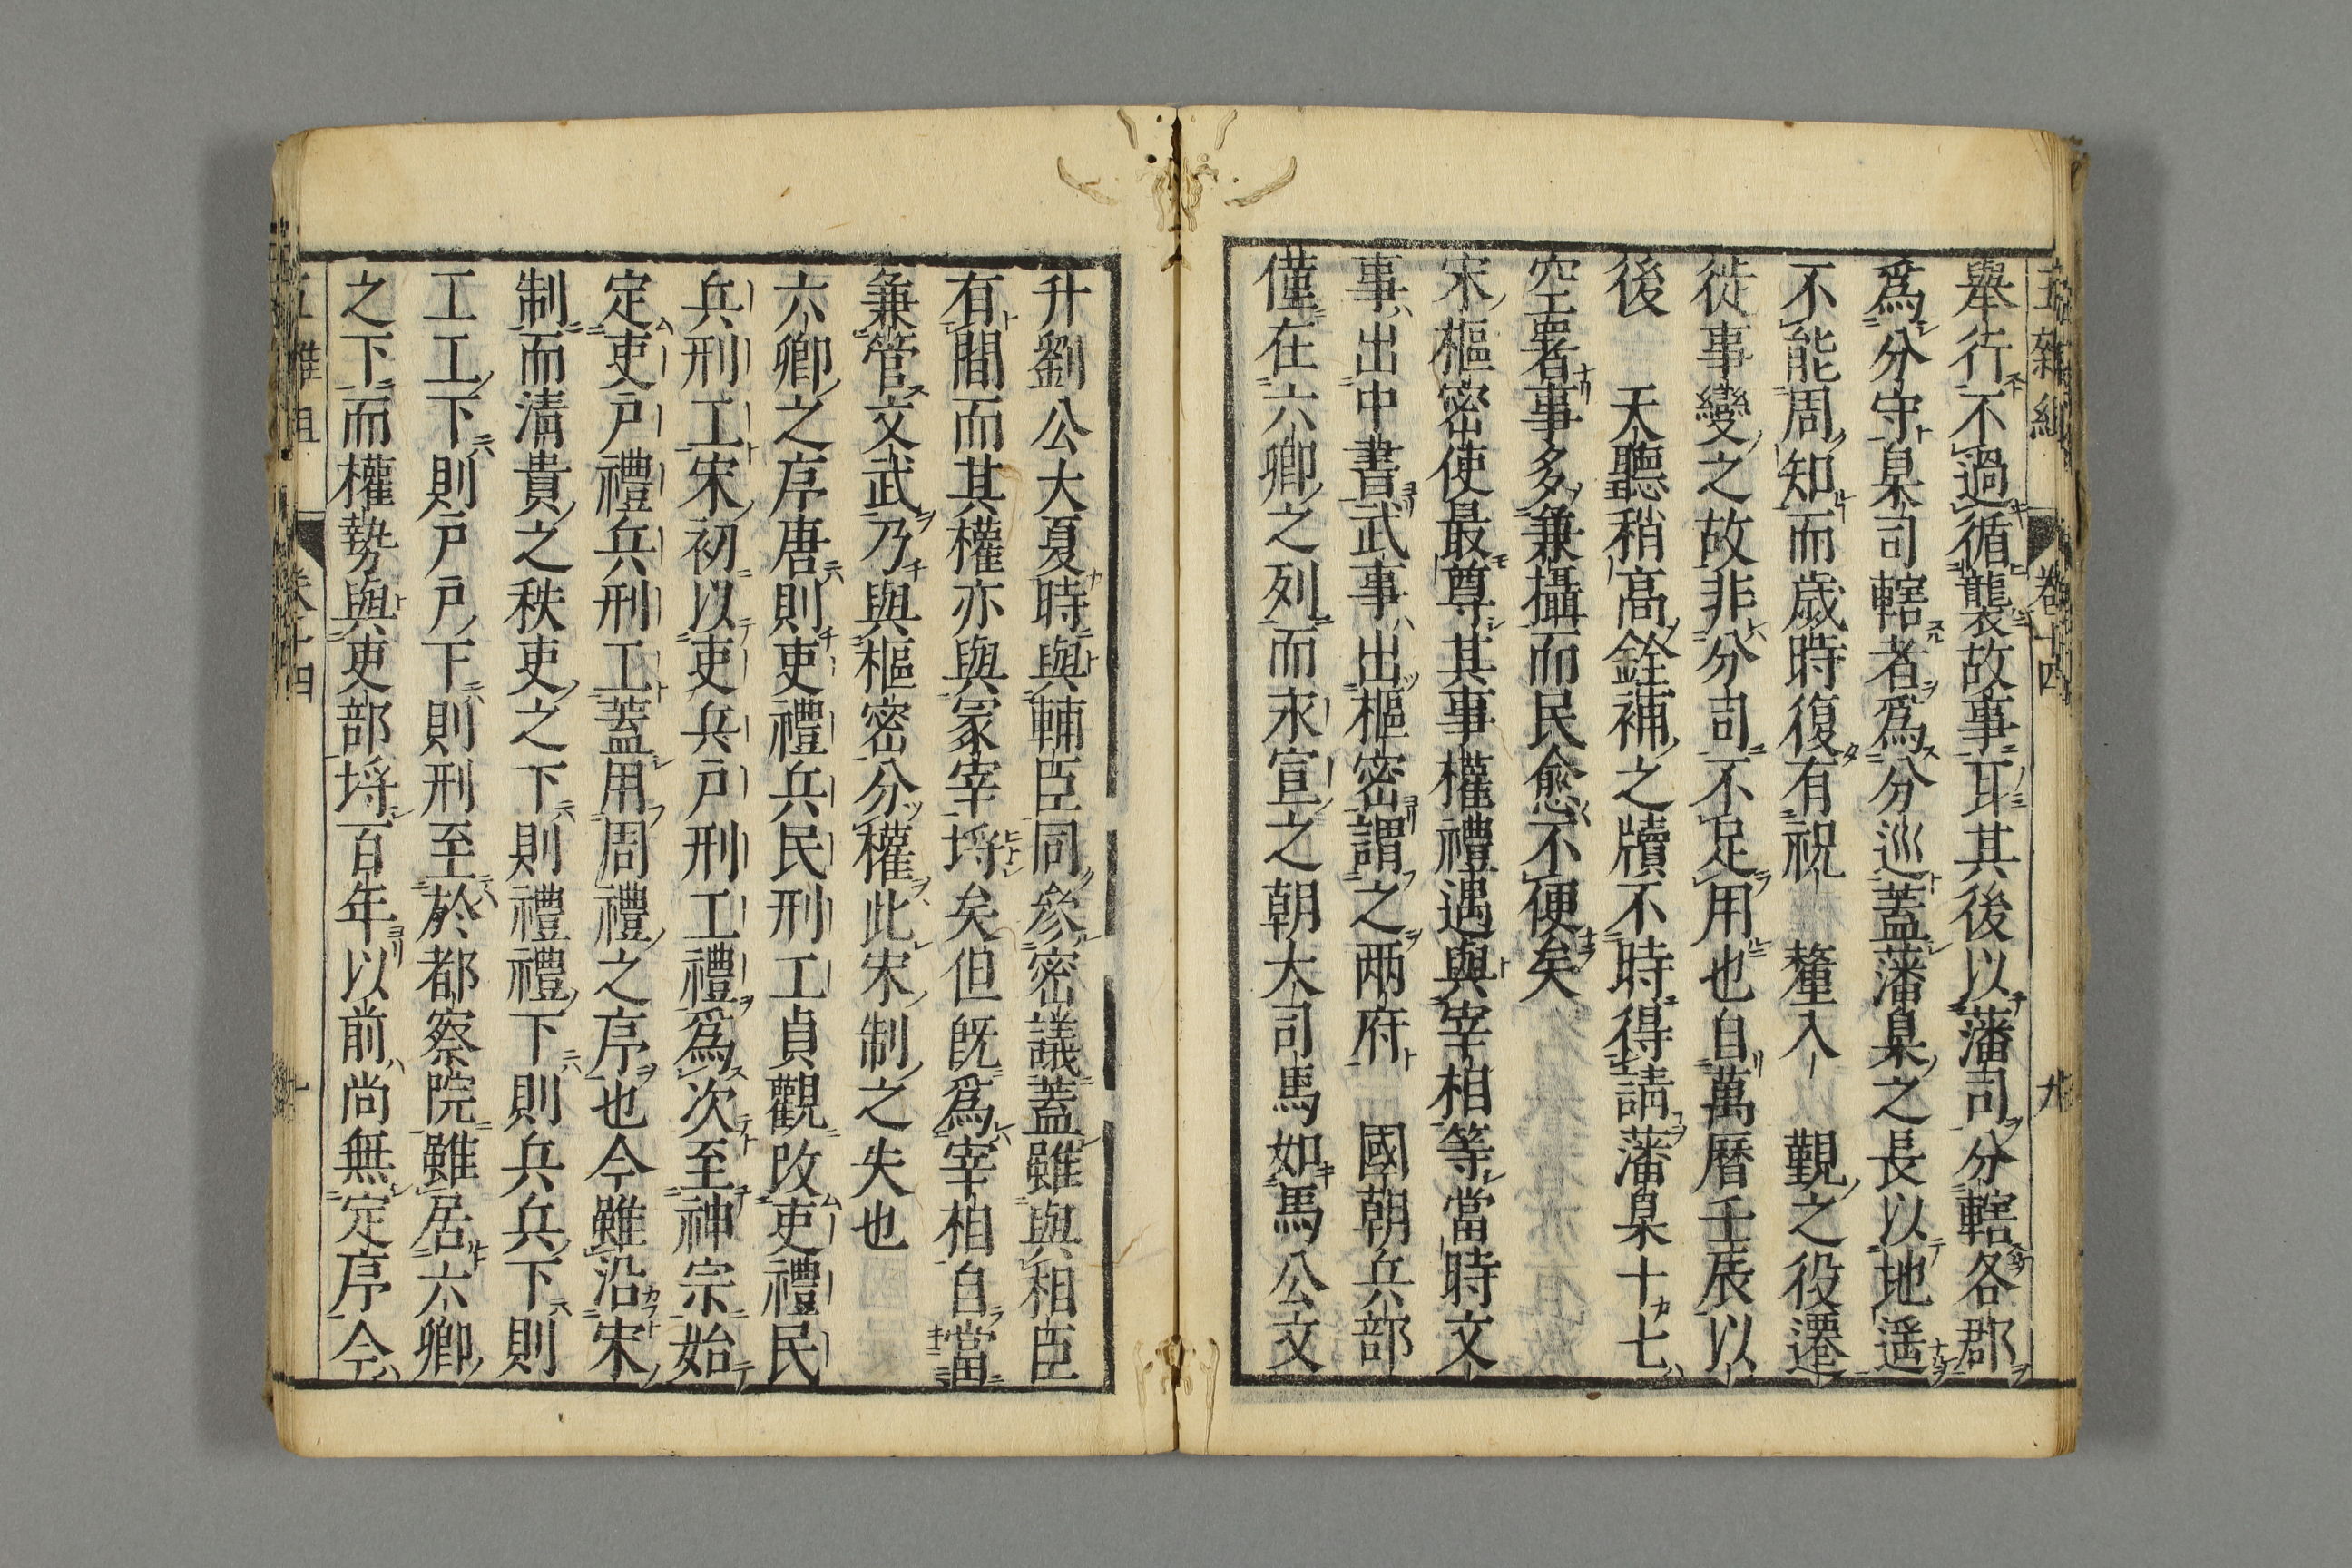 五雜組 卷十四 九
舉行不過循襲故事耳其後以藩司分轄各郡
爲分守臬司轄者爲分巡蓋藩臬之長以地遥
不能周知而歲時復有祝 釐入 覲之役遷
徙事變之故非分司不足用也自萬曆壬辰以
後 天聽稍高銓補之牘不時得請藩臬十七
空署事多兼攝而民愈不便矣
宋樞密使最尊其事權禮遇與宰相等當時文
事出中書武事出樞密謂之兩府 國朝兵部
僅在六卿之列而永宣之朝大司馬如馬公文
升劉公大夏時與輔臣同叅密議蓋雖與相臣
有間而其權亦與冢宰埒矣但既爲宰相自當
兼管文武乃與樞密分權此宋制之失也
六卿之序唐則吏禮兵民刑工貞觀改吏禮民
兵刑工宋初以吏兵戶刑工禮爲次至神宗始
定吏戶禮兵刑工蓋用周禮之序也今雖沿宋
制而清貴之秩吏之下則禮禮下則兵兵下則
工工下則戶戶下則刑至於都察院雖居六卿
之下而權勢與吏部埒百年以前尚無定序今